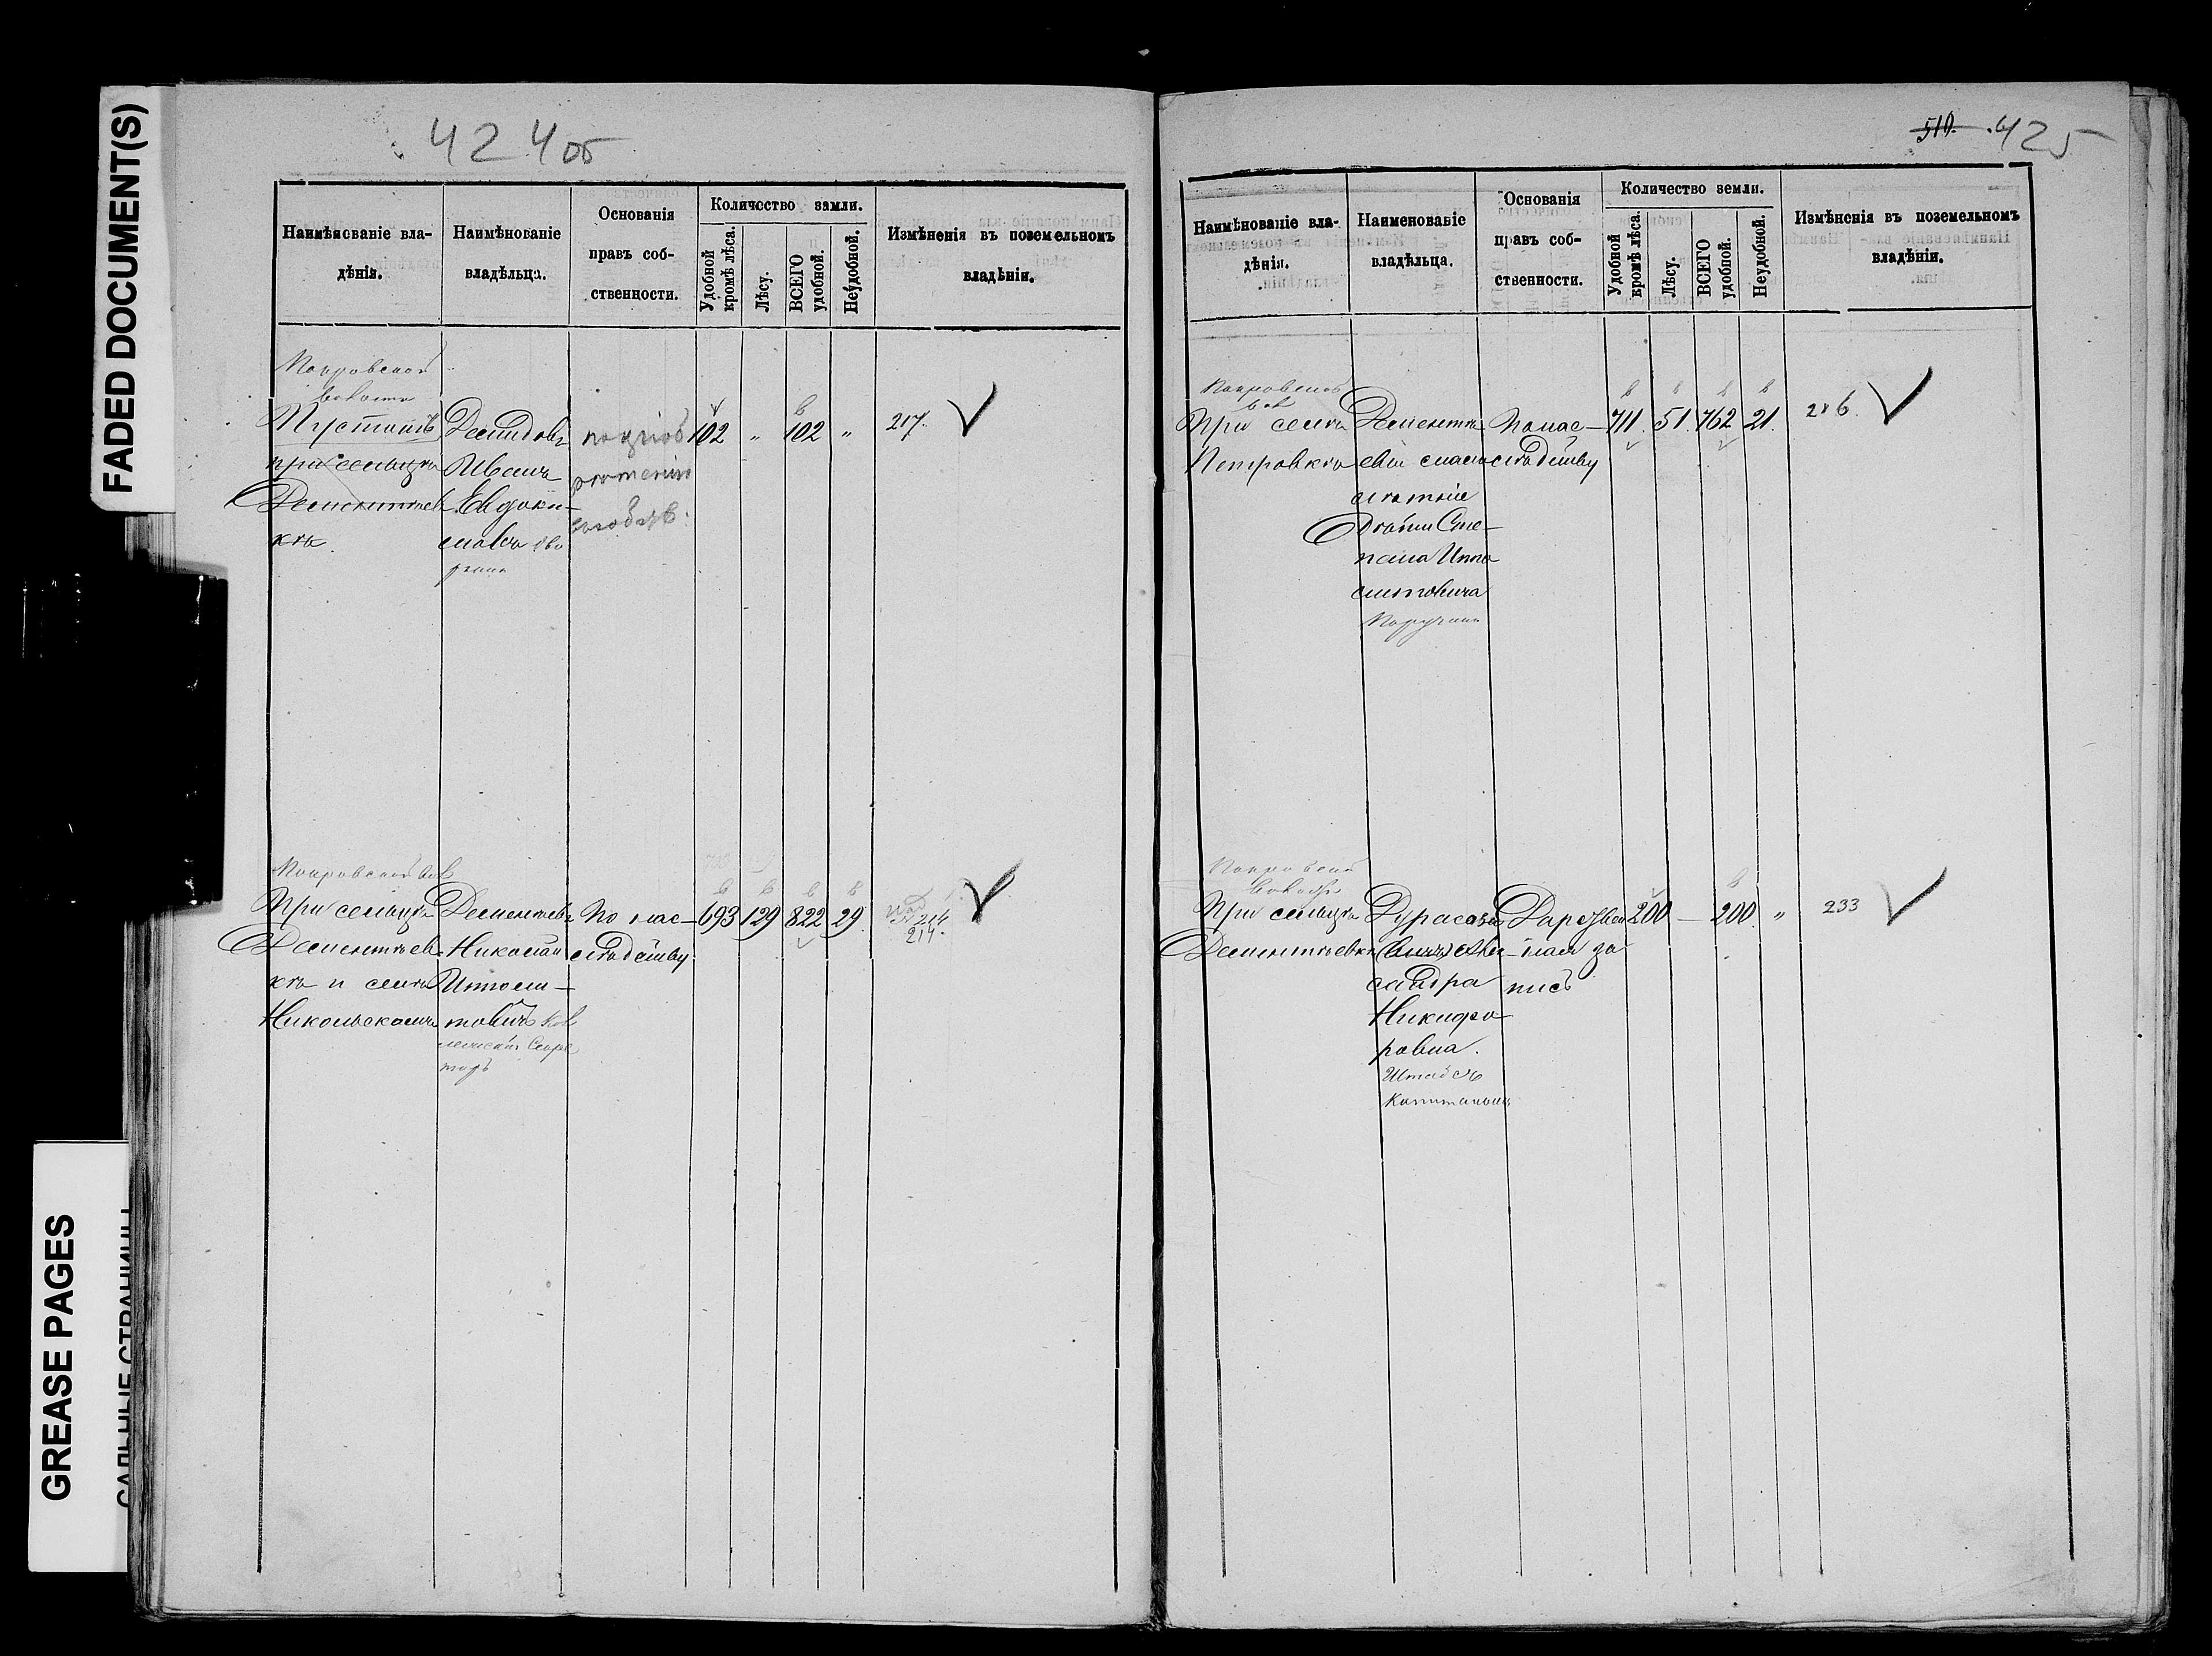 FADED DOCUMENT(S)
GREASE PAGES
САЛЬНЫЕ СТРАНИЦЫ
424 об
Наимѣнованіе вла-
дѣнія.
Наимѣнованіе
владѣльца.
Основанія
правъ соб-
ственности.
Количество земли.
Удобной
кромѣ лѣса.
Лѣсу.
ВСЕГО
удобной.
Неудобной.
Измѣненія въ поземельномъ
владѣніи.
Покровской
волости
Пустошь
при сельцѣ
Дементьев-
кѣ.
Демидовъ
Иванъ
Евдоки-
мовъ дво
рянин
102 „ 102 „
217.
Покровской вол
При сельцѣ
Дементьев-
кѣ и селѣ
Никольскомъ
Дементьевъ
Николай
Ипполи-
товичъ Кол
лежскій Секре
тарь
По нас-
лѣдству
693 129 822 29
214
214.
510. 425
Наимѣнованіе вла-
дѣнія.
Наименованіе
владѣльца.
Основанія
правъ соб-
ственности.
Количество земли.
Удобной
кромѣ лѣса.
Лѣсу.
ВСЕГО
удобной.
Неудобной.
Измѣненія въ поземельномъ
владѣніи.
Покровской
вол
При селѣ
Петровкѣ
Дементь-
евы мало
лѣтніе
Дѣти Сте-
пана Иппо
литовича
Поручика
По нас-
лѣдству
711. 51. 762 21.
216.
Покровской
волости
При сельцѣ
Дементьевкѣ
Дурасова
Алек-
сандра
Никифо-
ровна.
Штабсъ
Капитанша
Дарствен-
ная за
пись
200 — 200. „
233